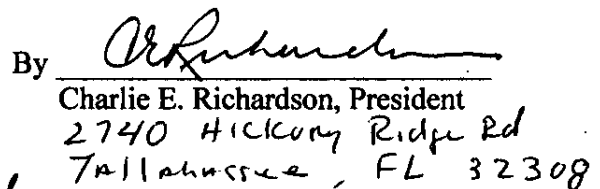 By CERichardson
Charlie E. Richardson, President
2740 Hickory Ridge Rd
Tallahassee, FL 32308